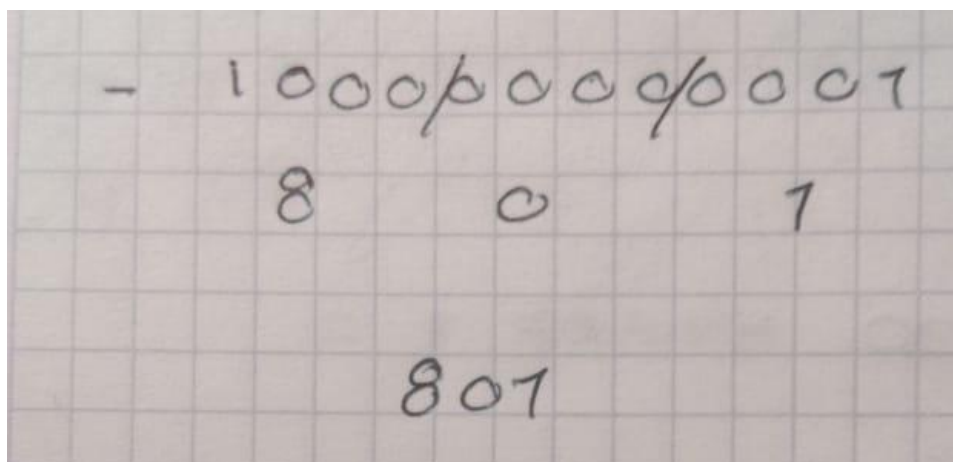 - 1000/0000/0001
8 0 1
801